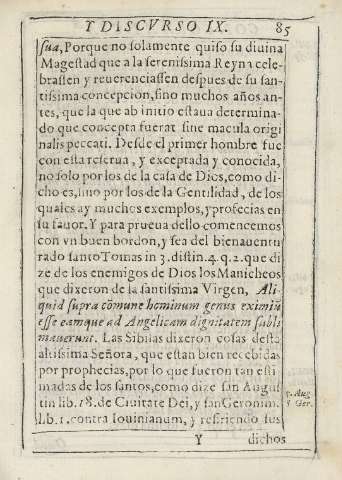 Y DISCVRSO IX. 85
sua, Porque no solamente quiso su diuina
Magestad que a la serenissima Reyna cele-
brassen y reuerenciassen despues de su san-
tissima concepcion, sino muchos años an-
tes, que la que ab initio estaua determina-
do que concepta fuerat sine macula origi
nalis peccati. Desde el primer hombre fue
con esta reserua, y exceptada y conocida,
no solo por los de la casa de Dios, como di-
cho es, sino por los de la Gentilidad, de los
quales ay muchos exemplos, y profecias en
su fauor. Y para prueua dello comencemos
con vn buen bordon, y sea del bienauentu
rado santo Tomas in 3. distin. 4. q. 2. que di
ze de los enemigos de Dios los Manicheos
que dixeron de la santissima Virgen, Ali
quid supra cõmune hominum genus eximiũ
esse eamque ad Angelicam dignitatem subli
mauerunt. Las Sibilas dixeron cosas desta
altissima Señora, que estan bien recebidas
por prophecias, por lo que fueron tan esti
madas de los santos, como dize san Augus
tin lib. 18. de Ciuitate Dei, y san Geronim.
Lib. 1. contra Iouinianum, y refiriendo sus
S. Aug
S Ger.
Y dichos